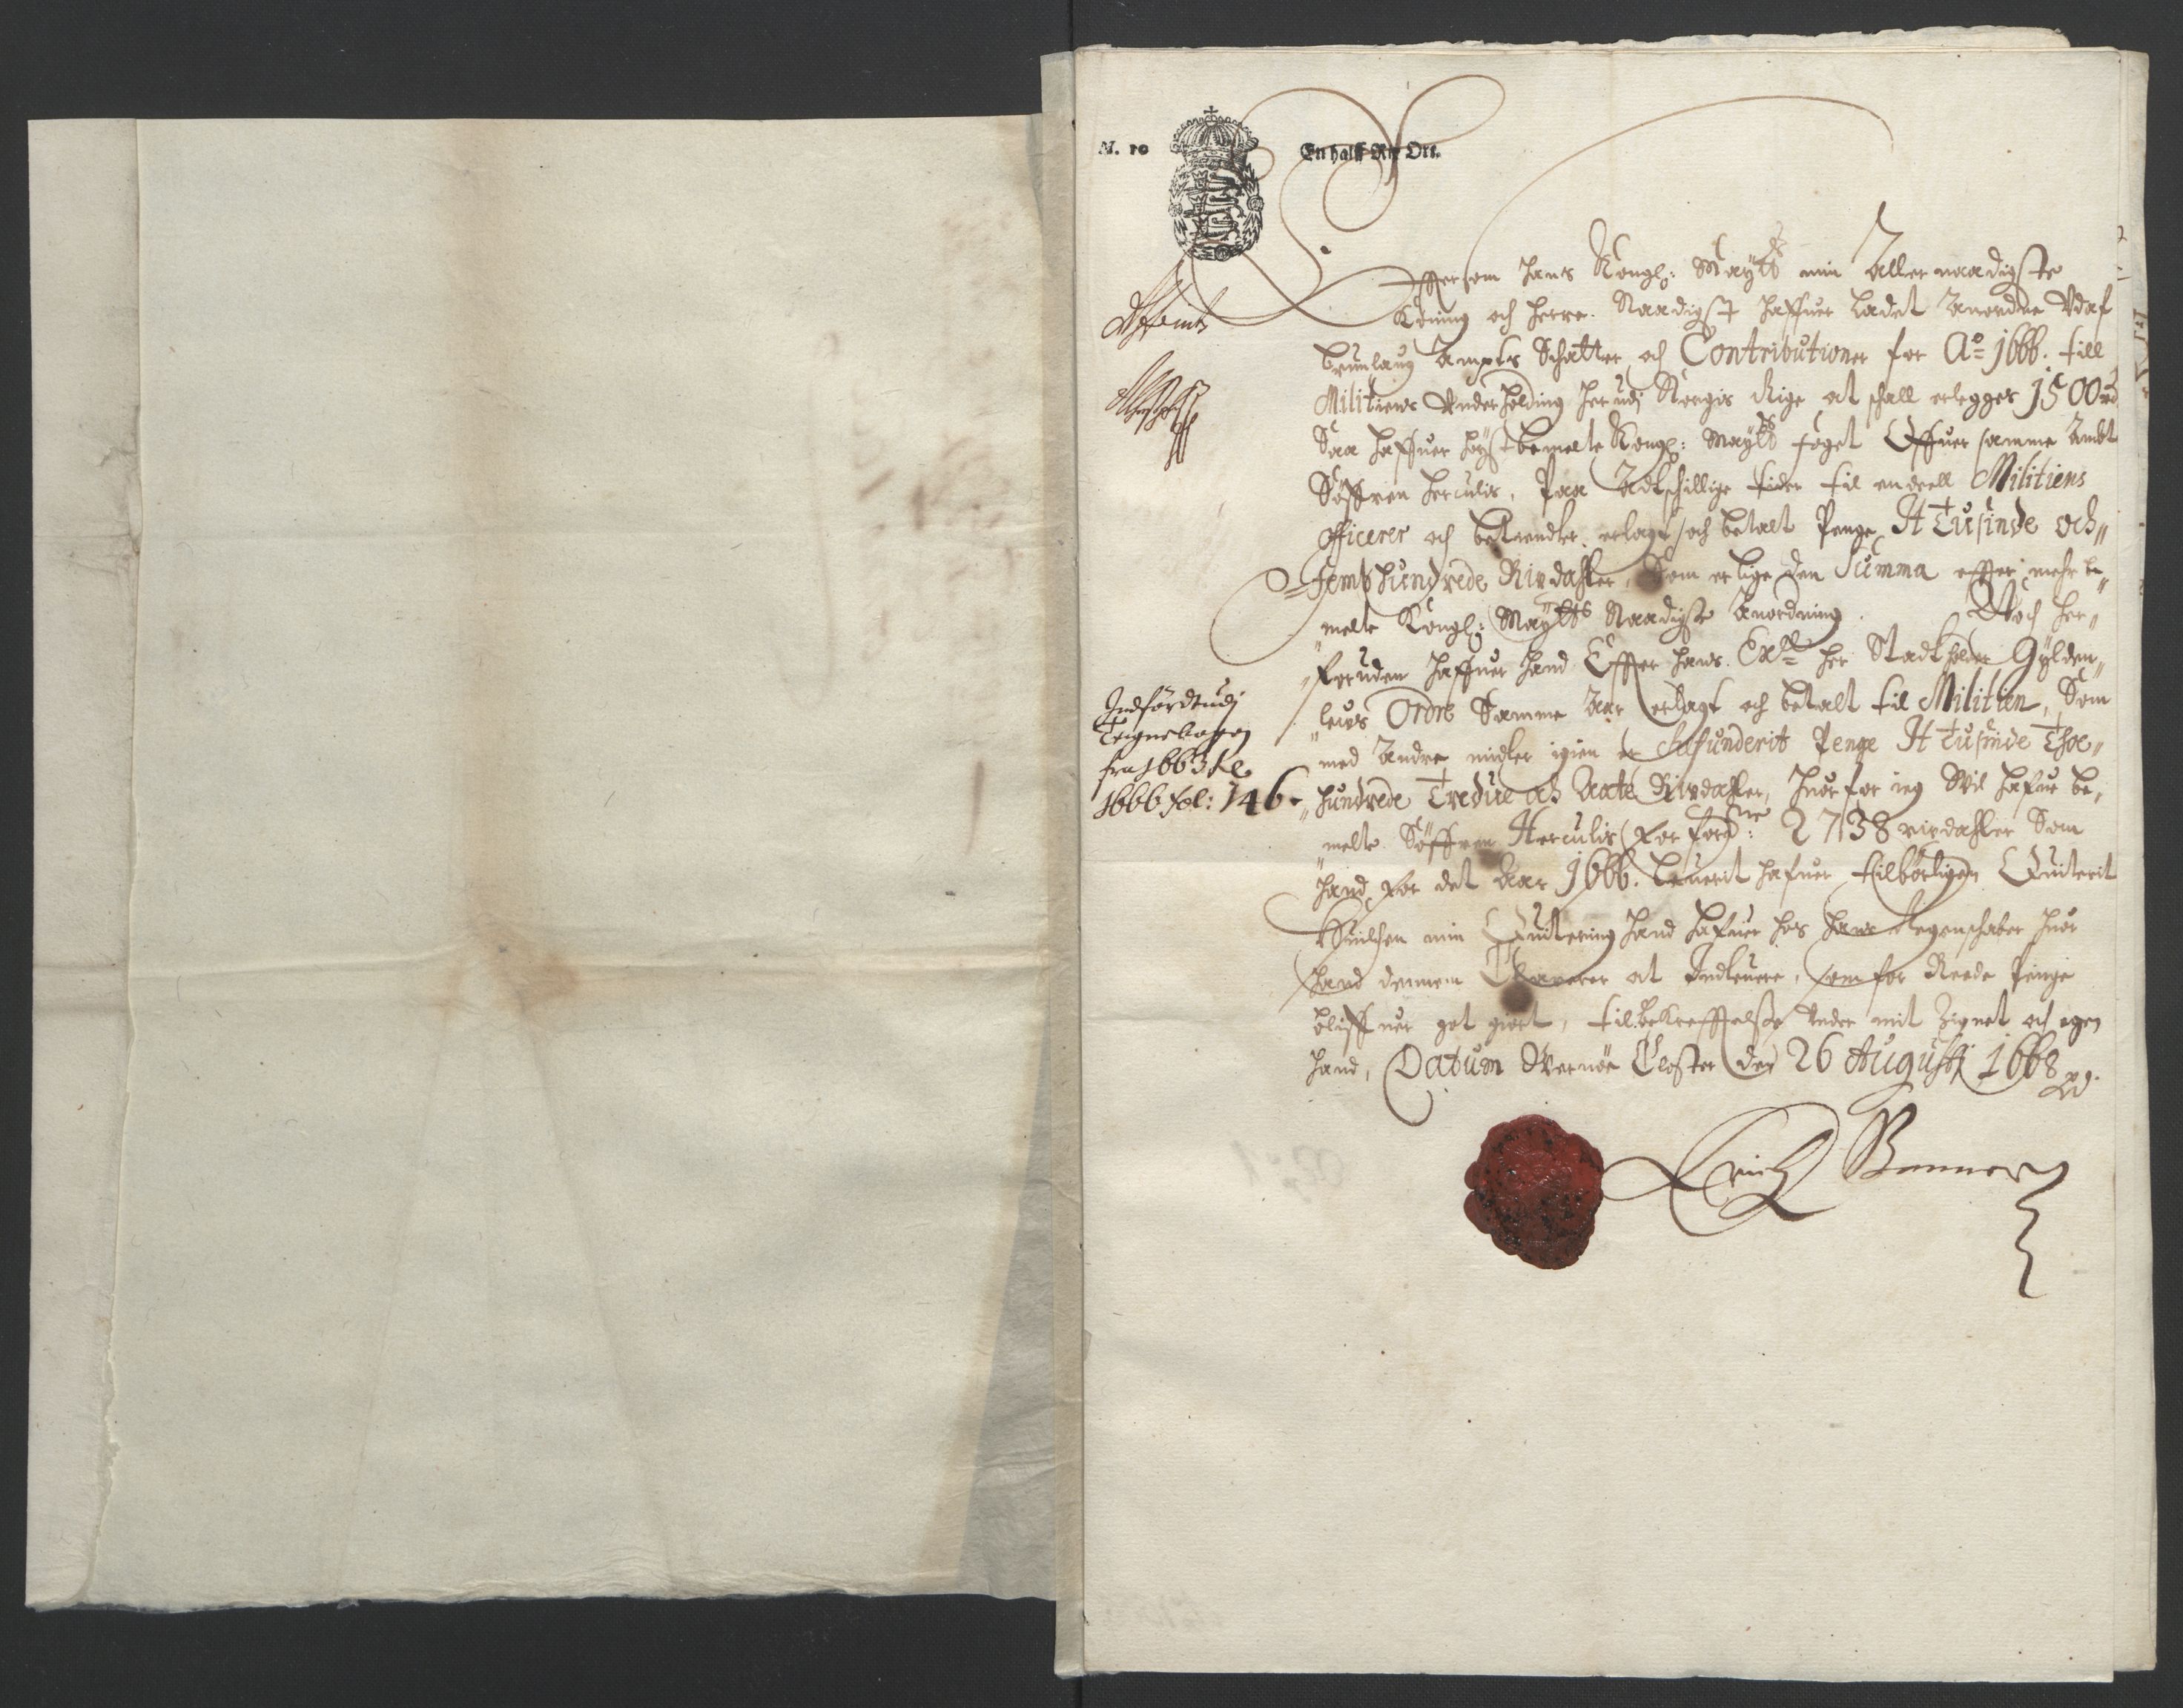 N. 10 En halff Rix Ort.
Efftersom hans Kongl: Maÿtts min Allernaadigste
Koning och herre. Naadigst haffuer ladet Anordne Vdaf
brunlaug Ampts Schatter och Contributioner for Ao 1666. till
Militiens Underholding her udj Norgis Rige at schall erlegges 1500 rd
Saa haffuer høÿstbemelte Kongl: Maÿtts foget Offuer samme Ambt
Søffren Herculis, Paa Adtschillige tider til en deell Militiens
Officerer och betiendter, erlagt och betalt Penge It Tusinde och
femb hundrede Rixdahler, Som er lige den Summa effter mehrbe
melte Kongl: Maÿtts Naadigste Anordning. Och her
foruden haffuer hand Effter hans Exll: her Stadtholder Gÿlden
leuis Ordre Samme Aar erlagt och betalt til Militien, Som
med Andre midler igien er Refunderit Penge It Tusinde Thoe
hundrede Tredue och Aate Rixdahler, huorfor ieg Vil hafue be
melte Søffren Herculis for forne: 2738 rixdahler Som
hand for det Aar 1666. leuerit hafuer tilbørligen Quiterit
Huilchen min Quitering hand hafuer hos hans Regenschaber huor
hand dennem at Indleuere, som for Reede Penge
bliffuer got giort, til bekrefftelse Under mit Zignet och egen
hand, Datum Wernøe Closter den 26 Augustj 1668
Erich Banner
Indførdt udj
Teignebogen
fra 1663 til
1666 fol: 146